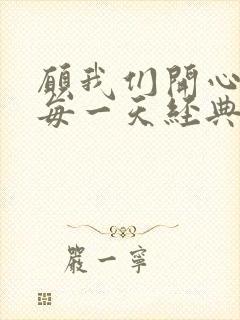 願我们開心
每一天經典
嚴一寧